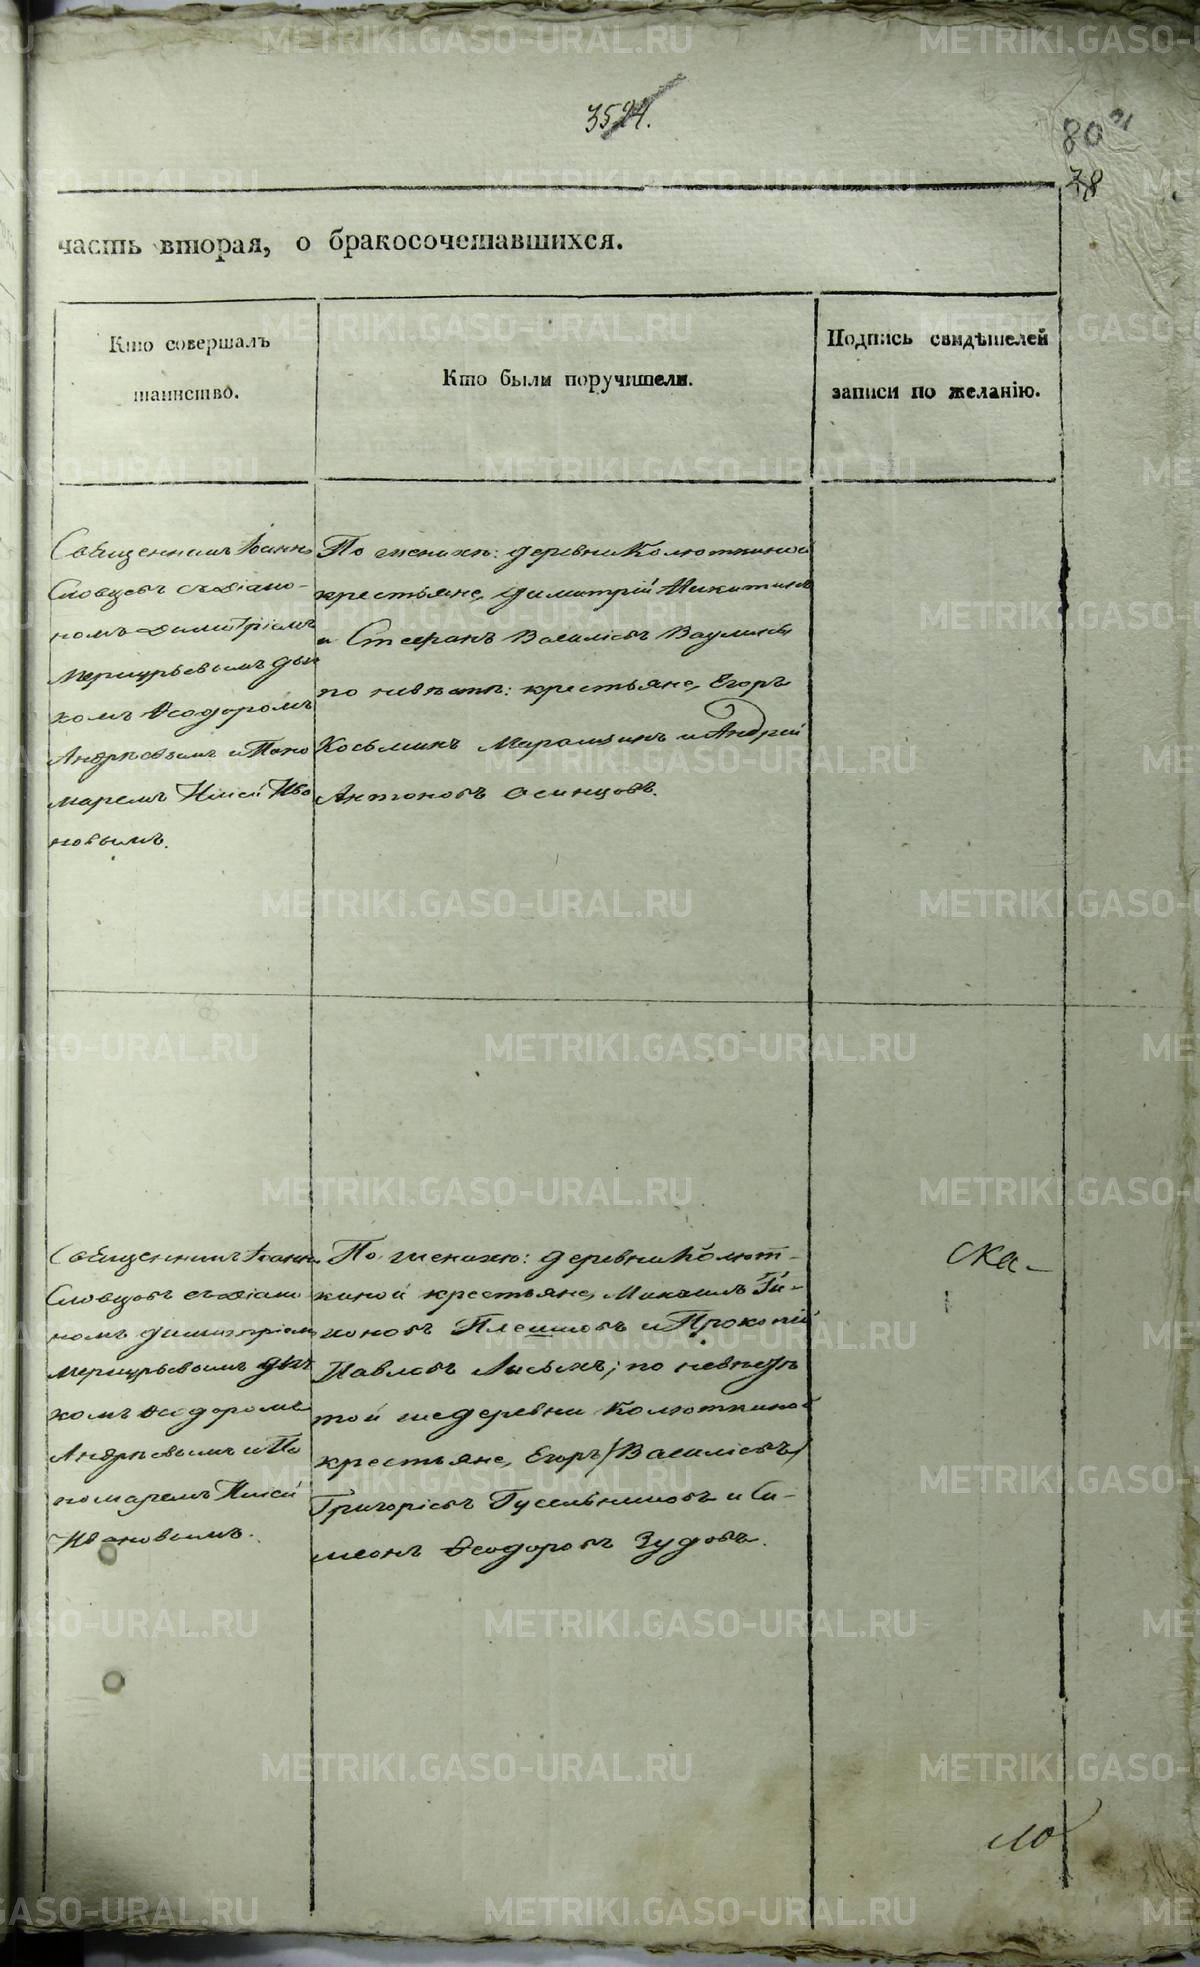 3524.
80
78
часть вторая, о бракосочетавшихся.
Кто совершалъ
таинство.
Кто были поручители.
Подпись свидѣтелей
записи по желанію.
Священникъ Іоаннъ
Словцовъ съ діако-
номъ Димитріемъ
Меркурьевымъ дья
комъ Ѳеодоромъ
Андрѣевымъ и Поно
маремъ Иліей Ива
новымъ.
По женихѣ: деревни Колюткиной
крестьяне, Димитрій Никитинъ
и Стефанъ Василіевъ Ваулины
по невѣстѣ: крестьяне, Егоръ
Косьминъ и Андрей
Антоновъ Осинцовъ.
Священникъ Іоаннъ
Словцовъ съ діако
номъ Димитріемъ
Меркурьевымъ дья
комъ Ѳеодоромъ
Андрѣевымъ и По
номаремъ Иліей
Ивановымъ.
По женихѣ: деревни Колют-
киной крестьяне, Михаилъ Ти-
хоновъ Плешковъ и Прокопій
Павловъ Лисьихъ; по невѣстѣ
той же деревни Колюткиной
крестьяне, Егоръ /Василіевъ/
Григорієвъ Гусельниковъ и Си-
меонъ Ѳеодоровъ Зудовъ.
ска-
METRIKI.GASO-URAL.RU